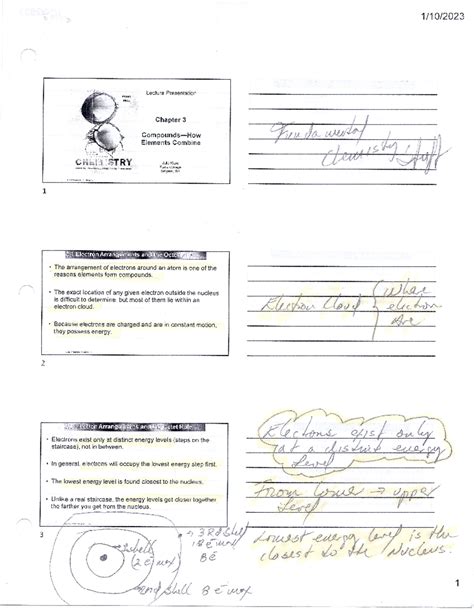 1/10/2023
Lecture Presentation
Chapter 3
Compounds—How
Elements Combine
CHEMISTRY
1
Fundamental
Chemistry Stuff
3.1 Electron Arrangements and the Octet Rule
• The arrangement of electrons around an atom is one of the
reasons elements form compounds.
• The exact location of any given electron outside the nucleus
is difficult to determine, but most of them lie within an
electron cloud.
• Because electrons are charged and are in constant motion,
they possess energy.
2
Electron Cloud
Where
electron
Are
3.1 Electron Arrangements and the Octet Rule
• Electrons exist only at distinct energy levels (steps on the
staircase), not in between.
• In general, electrons will occupy the lowest energy step first.
• The lowest energy level is found closest to the nucleus.
• Unlike a real staircase, the energy levels get closer together
the farther you get from the nucleus.
3
Electrons exist only
at a distinct energy
Level
From lower → upper
Level
Lowest energy level is the
closest to the Nucleus.
shell
2 e max
3Rd shell
18 e max
8 e
2nd shell 8 e max
1